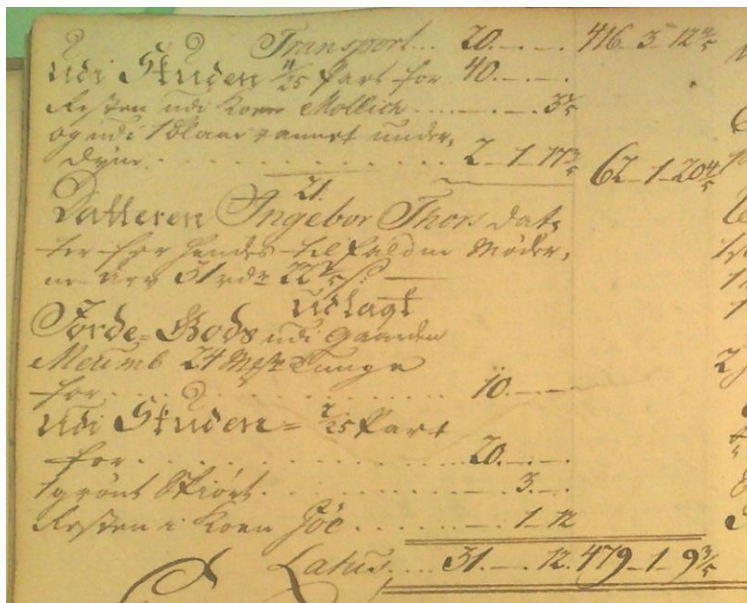 Transport... 20.-.- 416 3 12 4/5
udi Studen 4/25 Part for 40.-.-
Resten udi Koen Mollich - - - - 3 2/5
og udi 1 blaar vannet under,
dyne . . . . . . . . . 2 - 1 - 17 3/5 62 - 1 - 20 4/5
21.
Datteren Ingebor Thors dat,
ter for hendes tilfaldne Møder,
ne Arv 31 rdr 22 s
udlagt
Jorde=Gods udi Gaarden
Meumb 24 Tunge
for . . . . . . . . . 10.-.-
udi Studen = 2/25 Part
for . . . . . . . . . 20.-.-
1 grønt Skiørt . . . . . . 3.-.-
Resten i Koen . . . . . . - 1 - 12
Latus.... 31.-.12. 479 - 1 - 9 3/5